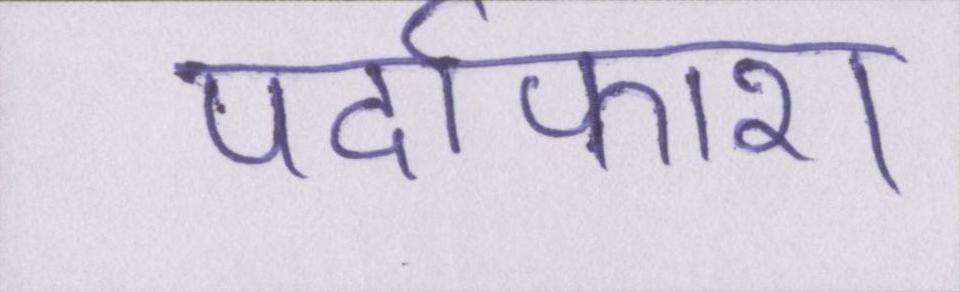 पर्दाफाश